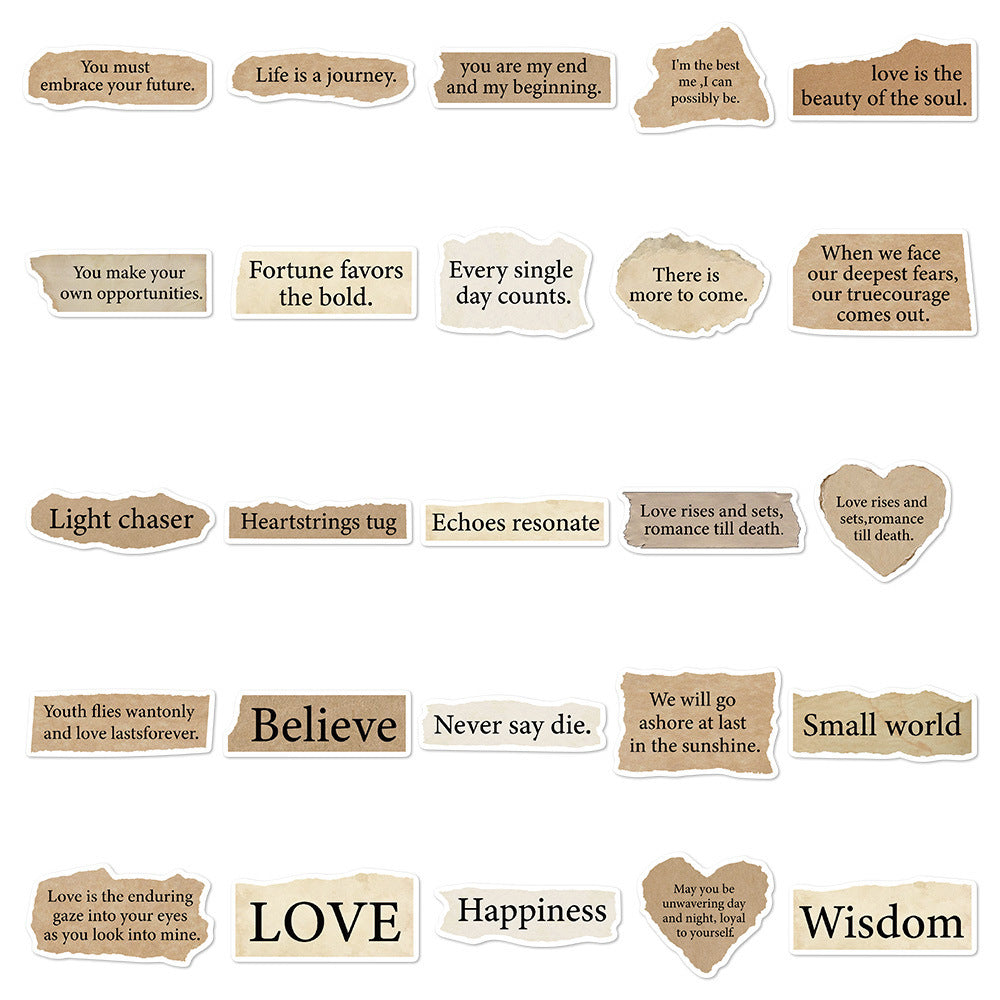 You must
embrace your future.
Life is a journey.
you are my end
and my beginning.
I'm the best
me ,I can
possibly be.
love is the
beauty of the soul.
You make your
own opportunities.
Fortune favors
the bold.
Every single
day counts.
There is
more to come.
When we face
our deepest fears,
our truecourage
comes out.
Light chaser
Heartstrings tug
Echoes resonate
Love rises and sets,
romance till death.
Love rises and
sets,romance
till death.
Youth flies wantonly
and love lastsforever.
Believe
Never say die.
We will go
ashore at last
in the sunshine.
Small world
Love is the enduring
gaze into your eyes
as you look into mine.
LOVE
Happiness
May you be
unwavering day
and night, loyal
to yourself.
Wisdom